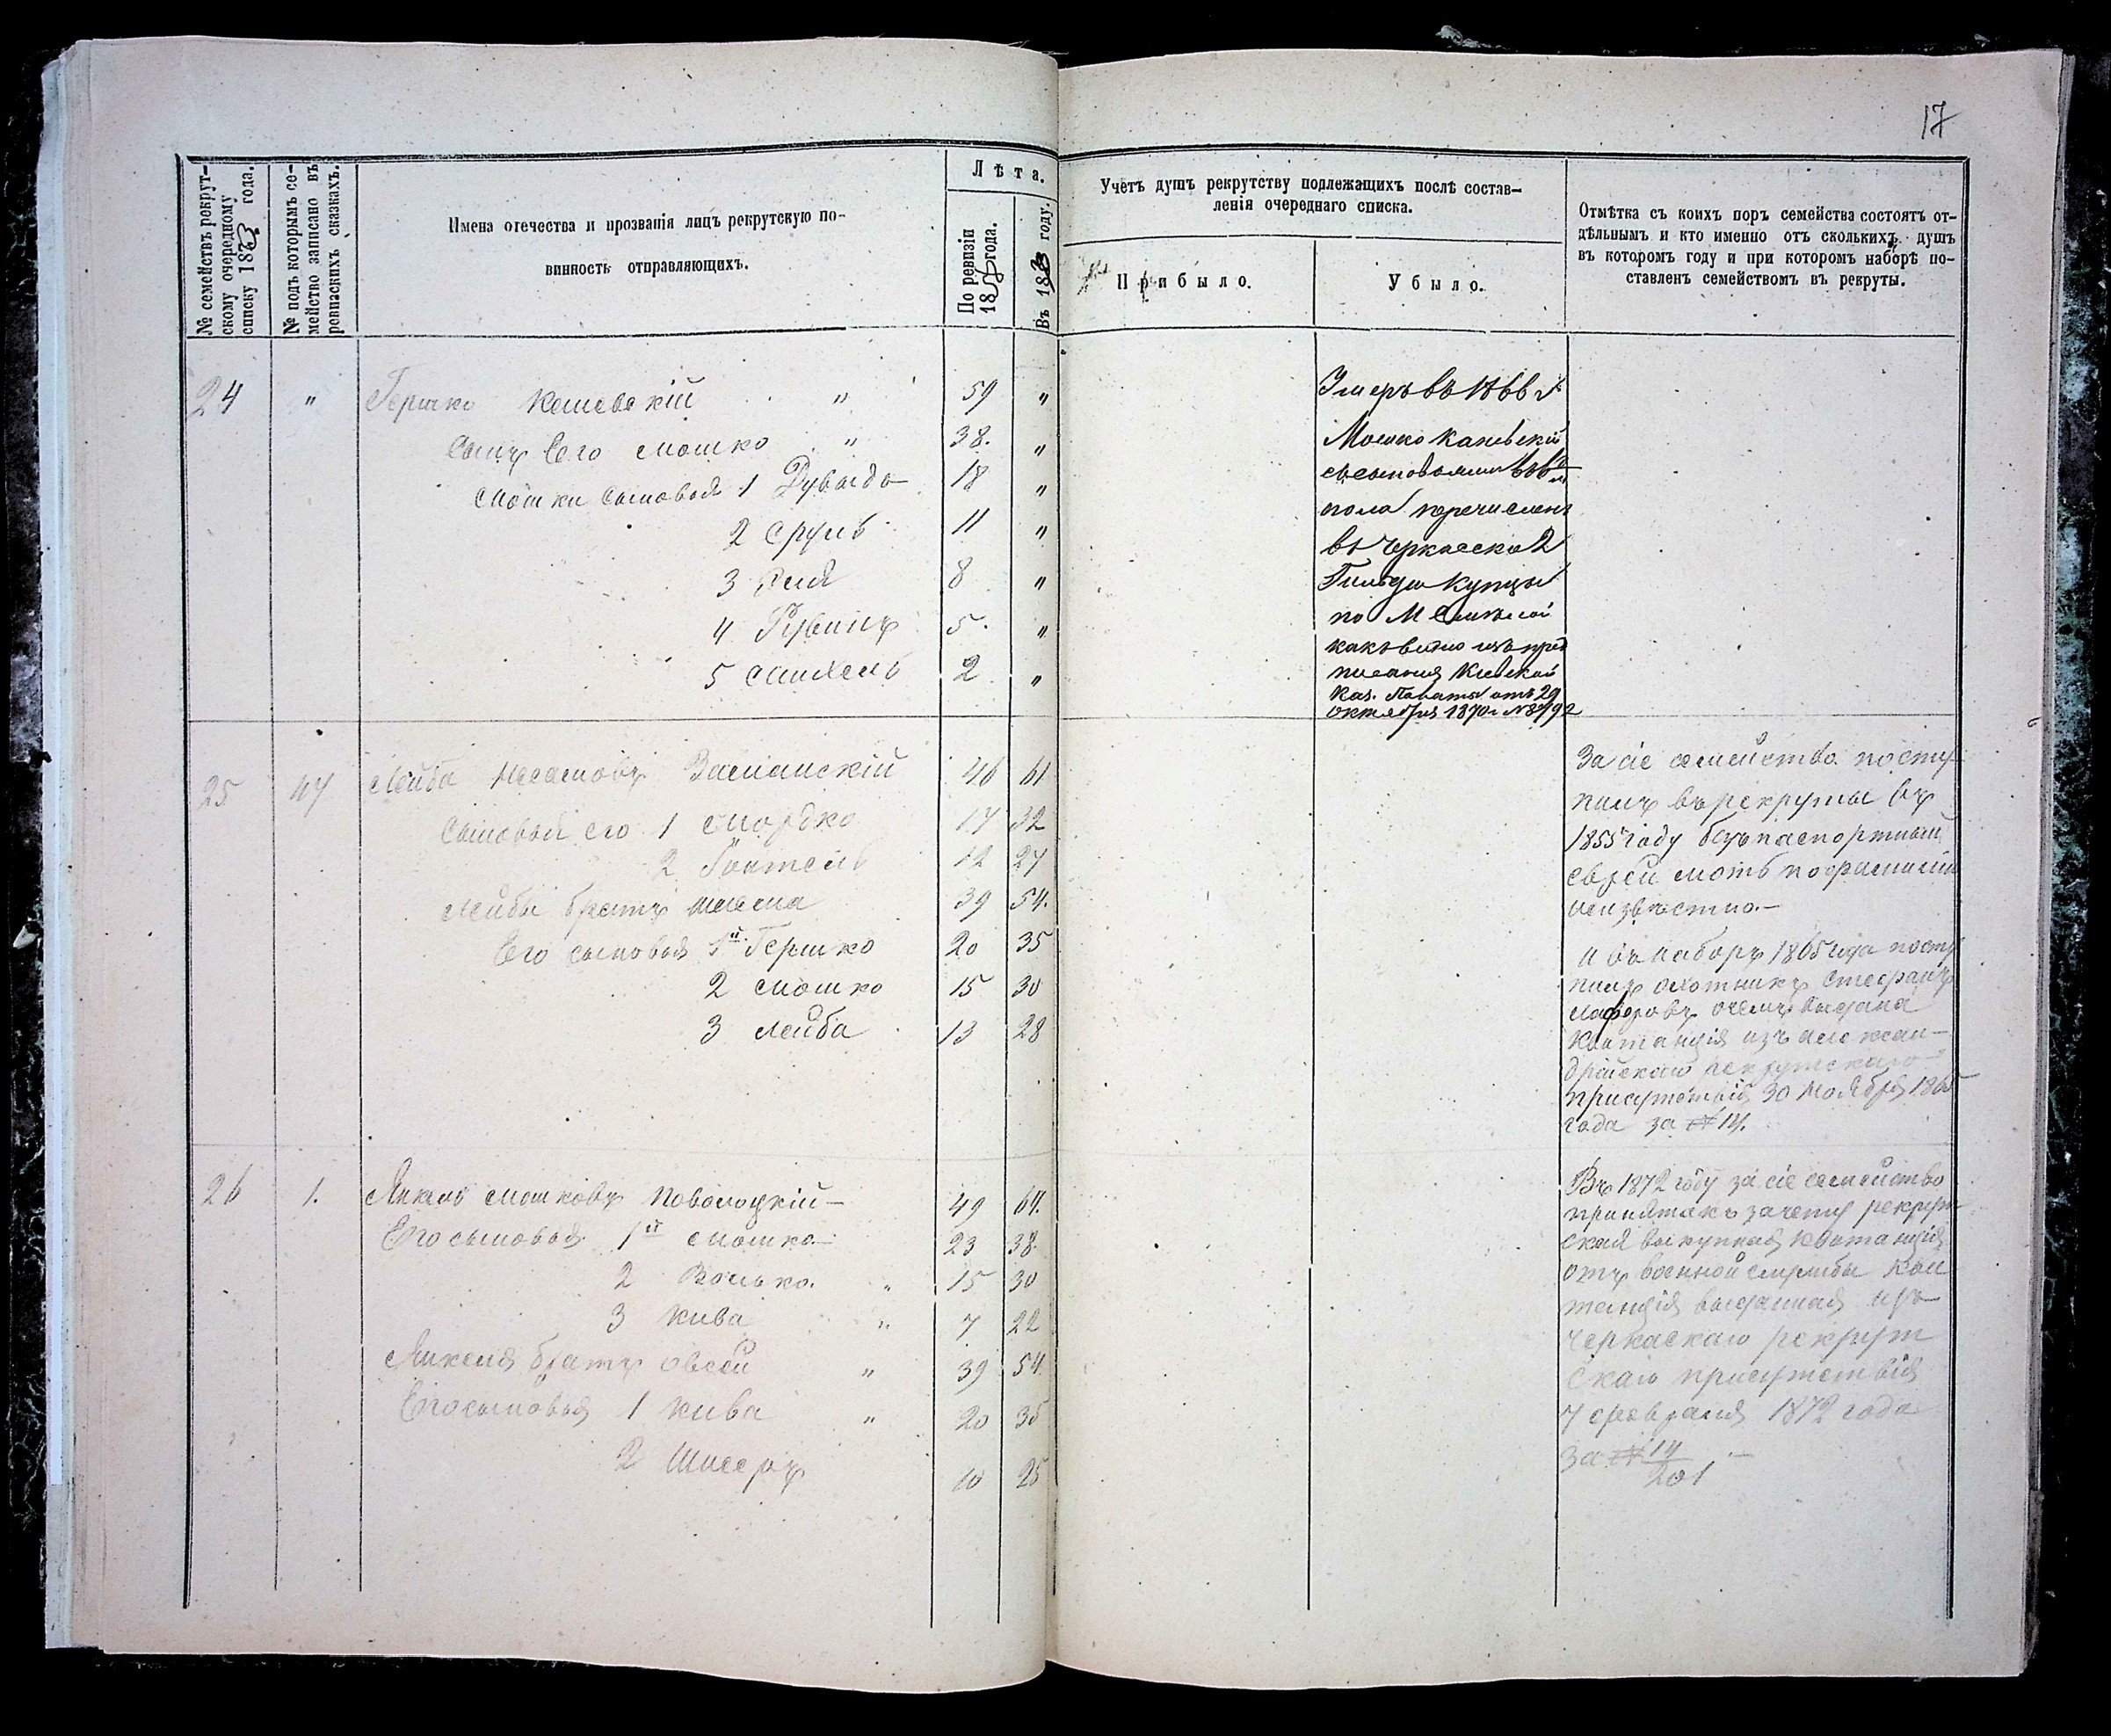 17
№ семействъ рекрут-
скому очередному
списку 1873 года.
№ подъ которымъ се-
мейство записано въ
ревизскихъ сказкахъ.
Имена отечества и прозванія лицъ рекрутскую по-
винность отправляющихъ.
Лѣта.
По ревизіи
18 года.
Въ 1873 году.
Учетъ душъ рекрутству подлежащихъ послѣ состав-
ленія очереднаго списка.
Прибыло.
Убыло.
Отмѣтка съ коихъ поръ семейства состоятъ от-
дѣльнымъ и кто именно отъ сколькихъ душъ
въ которомъ году и при которомъ наборѣ по-
ставленъ семействомъ въ рекруты.
24 " Гершко Каневскій " 59 "
Сынъ Его Мошко " 38. "
Мошки Сыновья 1 Дувыдъ 18 "
2 Сруль 11 "
3 8 "
4 Рувинъ 5. "
5 2 "
Умеръ въ 1866 г
Мошко Каневскій
съ сыновьями
пола перечисленъ
въ Черкаскіе 2
Гильдіи Купцы
по М Смѣлой
какъ видно изъ пред
писанія Кіевской
Каз. Палаты отъ 29
октября 1870 г №8792
25 47 Лейба Заславскій 46 61
Сыновья его 1 Мордко 17 32
2 12 27
Лейбы братъ 39 54.
Его сыновья 1й Гершко 20 35
2 Мошко 15 30
3 Лейба 13 28
За сіе семейство посту-
пилъ въ рекруты въ
1855 году безпаспортный
еврей пофамиліи
неизвѣстно.—
и въ наборъ 1865 года посту
пилъ охотникъ Стефанъ
очемъ выдана
Квитанція изъ Алексан-
дрійскаго рекрутскаго
присутствія 30 Ноября 1865
года за №14.
26 1. Янкель Мошковъ Поволоцкій— 49 64.
Его сыновья 1й Мошко— 23 38
2 Волько. " 15 30
3 Кива " 7 22
Янкеля братъ Овсей " 39 54
Его сыновья 1 Кива " 20 35
2 10 25
Въ 1872 году за сіе семейство
принята къ зачету рекрут-
ская выкупная квитанція
отъ военной службы Кви
танція выданная изъ
Черкаскаго рекрут
скаго присутствія
7 февраля 1872 года
за №14
201